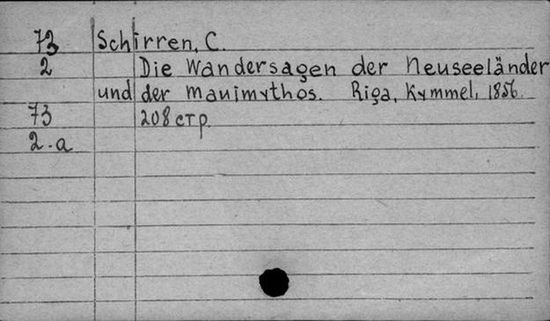 73 Schirren, C.
2 Die Wandersagen der Neuseeländer
und der Mauimythos. Riga, Kymmel, 1856.
73 208 стр.
2-a